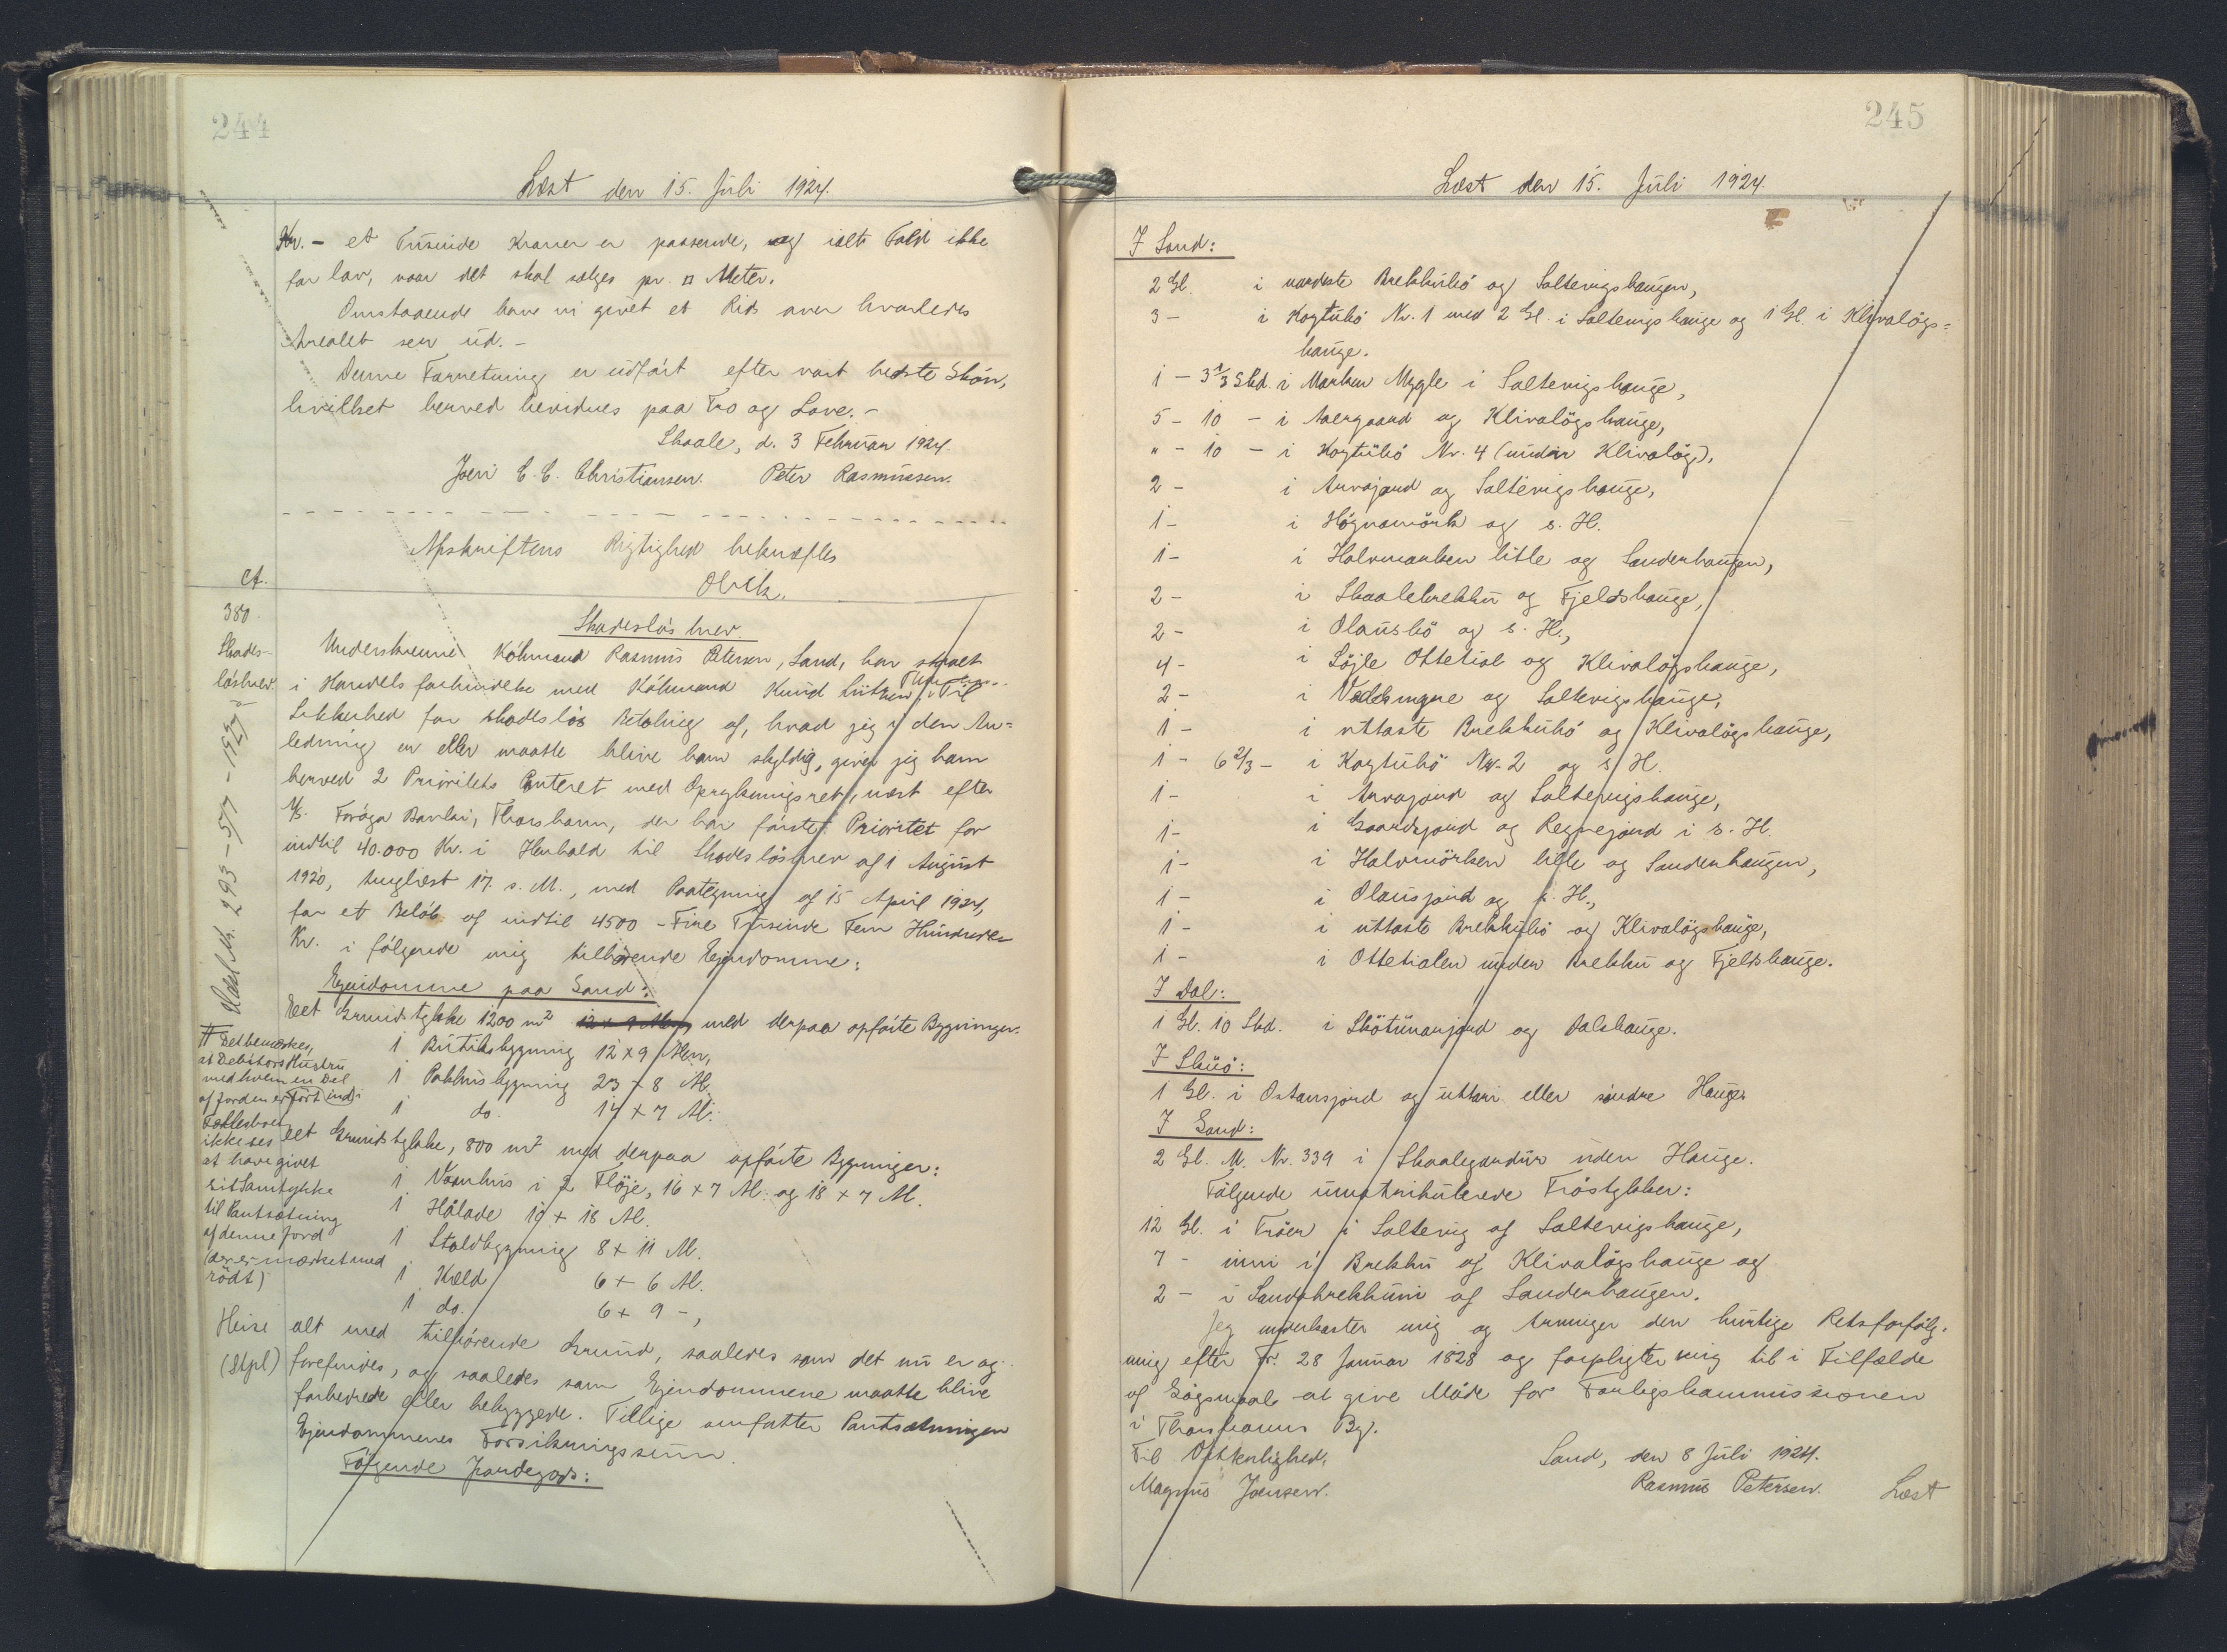 244
Læst den 15. Juli 1924.
Kr. - et Tusinde Kroner er passende, og ialt Fald ikke
for lav, naar det skal sælges pr. □ Meter.
Omstaaende have vi givet et Rids over hvorledes
Arealet ser ud. -
Denne Forretning er udført efter vort bedste Skøn,
hvilket herved bevidnes paa Tro og Love. -
Skaale, d. 3 Februar 1924.
Joen C. C. Christiansen. Peter Rasmussen.
Afskriftens Rigtighed bekræftes
A.
380.
Skades-
løsbrev.
Slet M. 293-577-1927
Skadesløsbrev
Underskrevne Købmand Rasmus Petersen, Sand, har staaet
i Handelsforbindelse med Købmand Knud Lützen, Thorshavn. Til
Sikkerhed for skadesløs Betaling af, hvad jeg i den An=
ledning er eller maatte blive ham skyldig, giver jeg ham
herved 2 Prioritets Panteret med Oprykningsret, næst efter
A/S. Forøya Banki, Thorshavn, der har første Prioritet for
indtil 40.000 Kr. i Henhold til Skadesløsbrev af 1 August
1920, tinglæst 17. s. M., med Paategning af 15 April 1924,
for et Beløb af indtil 4500 - Fire Tusinde Fem Hundrede
Kr. i følgende mig tilhørende Ejendomme:
Ejendomme paa Sand:
Eet Grundstykke 1200 m² 12 x 9 Alen, med derpaa opførte Bygninger.
1 Butiksbygning 12 x 9 Alen,
1 Pakhusbygning 23 x 8 Al.
1 do. 14 x 7 Al.
eet Grundstykke, 800 m² med derpaa opførte Bygninger:
1 Vaanhus i 2 Fløje, 16 x 7 Al. og 18 x 7 Al.
1 Hølade 19 x 18 Al.
1 Staldbygning 8 x 11 Al.
1 Kæld 6 x 6 Al.
1 do. 6 x 9 -,
alt med tilhørende Grund, saaledes som det nu er og
forefindes, og saaledes som Ejendommene maatte blive
forbedrede eller bebyggede. Tillige omfatter Pantsætningen
Ejendommenes Forsikringssum.
Følgende Jordegods:
# Det bemærkes,
at Debitors Hustru
med hvem en Del
af Jorden er ført ind i
Fællesboet
ikke ses
at have givet
sit Samtykke
til Pantsætning
af denne Jord
(der er mærket med
rødt)
Heise
(Stpl)
245
Læst den 15. Juli 1924.
I Sand:
2 Gl. i nordste Brekkubø og Saltevigshaugen,
3 - i Kogtubø Nr. 1 med 2 Gl. i Saltevigshauge og 1 Gl. i Klivaløgs=
hauge.
1 - 3 1/3 Skd. i Marken Mygle i Saltevigshauge,
5 - 10 - i Aaergaard og Klivaløgshauge,
" - 10 - i Kogtubø Nr. 4 (under Klivaløg),
2 - i Arvajord og Saltevigshauge,
1 - i Høgnamørk og s. H.
1 - i Halvmarken litle og Sanderhaugen,
2 - i Skaalebrekku og Fjeldshauge,
2 - i Olausbø og s. H.,
4 - i Løjle Ottetial og Klivaløgshauge,
2 - i Vaddingere og Saltevigshauge,
1 - i uttaste Brekkubø og Klivaløgshauge,
1 - 6 2/3 - i Kogtubø Nr. 2 og s. H.
1 - i Arvajord og Saltevigshauge,
1 - i Gaardsjord og Regnejord i s. H.
1 - i Halvmörken lille og Sanderhaugen,
1 - i Olausjord og s. H.,
1 - i uttaste Brekkubø og Klivaløgshauge,
1 - i Ottetialen under Brekku og Fjeldshauge.
I Dal:
1 Gl. 10 Skd. i Skøtunarjord og Dalshauge.
I Skuø:
1 Gl. i Ostansjord og uttari eller søndre Hauge
I Sand:
2 Gl. M. Nr. 339 i Skaalegardur uden Hauge.
Følgende umatrikulerede Trøstykker:
12 Gl. i Trøen i Saltevig af Saltevigshauge,
7 - inni í Brekku af Klivaløgshauge og
2 - i Sandsbrekkuni af Sanderhaugen.
Jeg underkaster mig og Arvinger den hurtige Retsforfølg-
ning efter Fr. 28 Januar 1828 og forpligter mig til i Tilfælde
af Søgsmaal at give Møde for Forligskommissionen
i Thorshavns By.
Til Vitterlighed. Sand, den 8 Juli 1924.
Magnus Joensen. Rasmus Petersen. Læst